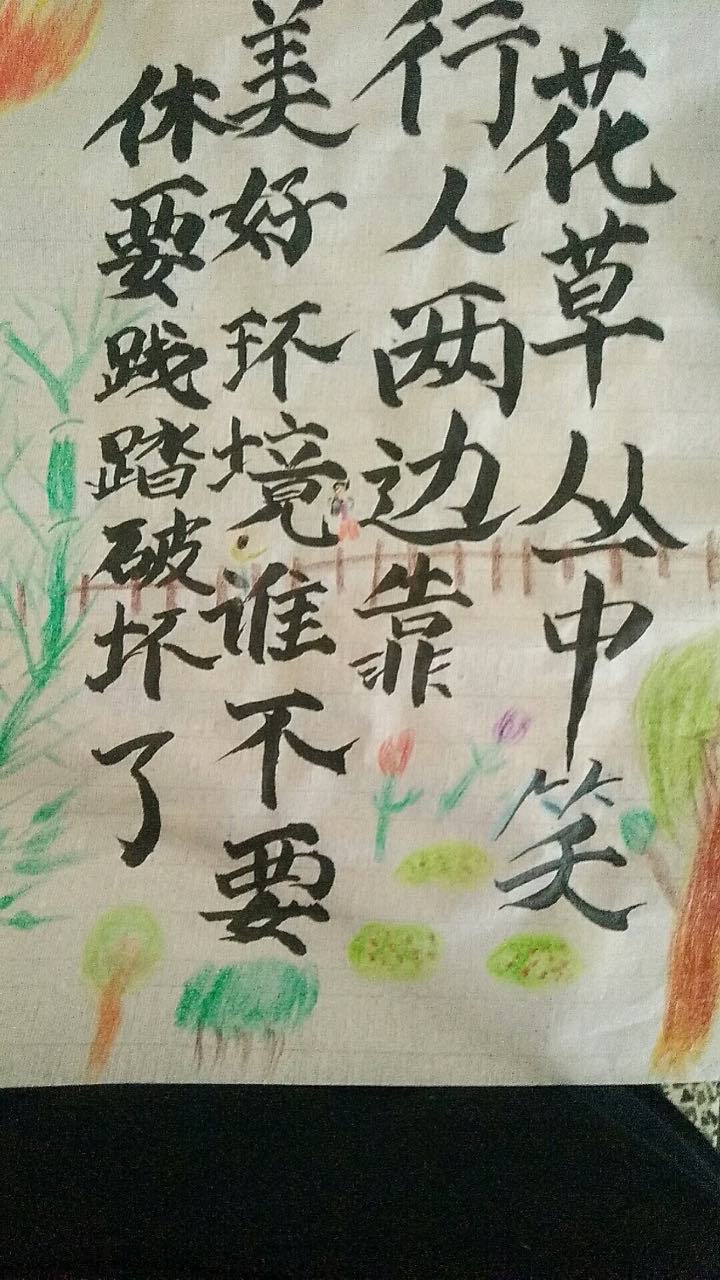 花草丛中笑
行人两边靠
美好环境谁不要
休要践踏破坏了